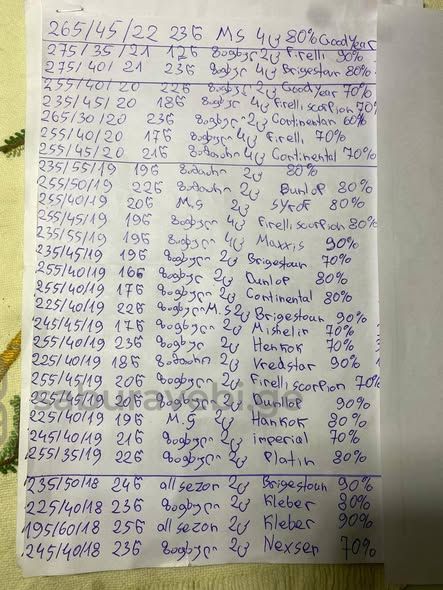 265/45/22 23წ MS 4ც 80% Goodyear
275/35/21 12წ ზაფხული 2ც Pirelli 90%
275/40/21 23წ ზაფხული 4ც Brigestoun 80%
255/40/20 22წ ზაფხული 2ც Goodyear 70%
235/45/20 18წ ზაფხული 4ც Pirelli scorpion 70%
265/30/20 23წ ზაფხული 2ც Continentan 60%
255/40/20 17წ ზაფხული 4ც Pirelli 70%
255/45/20 21წ ზამთარი 4ც Continental 70%
235/55/19 19წ ზამთარი 2ც 80%
255/50/19 22წ ზამთარი 2ც Dunlop 80%
255/40/19 20წ M.S 2ც 80%
255/45/19 19წ ზაფხული 4ც Pirelli scorpion 80%
235/55/19 19წ ზაფხული 4ც Maxxis 90%
235/45/19 19წ ზაფხული 2ც Brigestoun 70%
255/40/19 16წ ზაფხული 2ც Dunlop 80%
255/40/19 17წ ზაფხული 2ც Continental 80%
225/40/19 22წ ზაფხული M.S 2ც Brigestoun 90%
245/45/19 17წ ზაფხული 2ც Mishelin 70%
255/40/19 23წ ზაფხული 2ც Henkok 70%
225/40/19 18წ ზამთარი 2ც Vredstar 90%
255/45/19 20წ ზაფხული 2ც Pirelli scorpion 70%
2ც Dunlop 90%
225/40/19 19წ M.S 2ც Hankok 80%
245/40/19 21წ ზაფხული 2ც imperial 70%
255/35/19 22წ ზაფხული 2ც Platin 80%
235/50/18 24წ all sezon 2ც Brigestoun 90%
225/40/18 23წ ზაფხული 2ც Kleber 80%
195/60/18 25წ all sezon 2ც Kleber 90%
245/40/18 23წ ზაფხული 2ც Nexsen 70%
saburavebi.ge